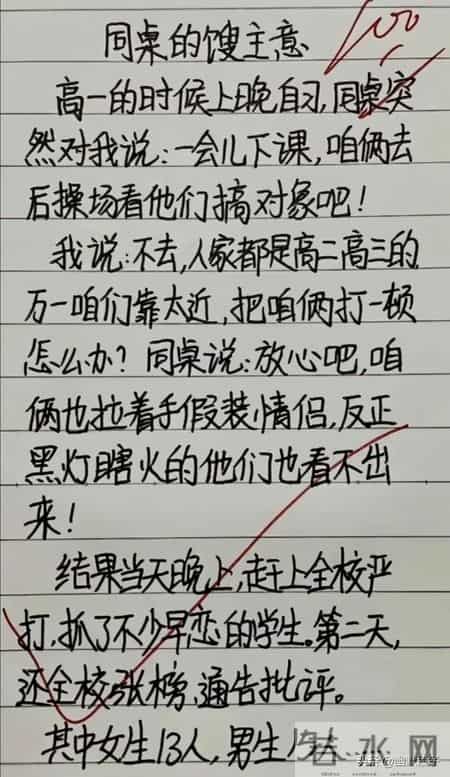 同桌的馊主意
100
高一的时候上晚自习,同桌突
然对我说:一会儿下课,咱俩去
后操场看他们搞对象吧!
我说:不去,人家都是高二高三的
万一咱们靠太近,把咱俩打一顿
怎么办?同桌说:放心吧,咱
俩也拉着手假装情侣,反正
黑灯瞎火的他们也看不出
来!
结果当天晚上,赶上全校严
打,抓了不少早恋的学生。第二天,
还全校张榜,通告批评。
其中女生13人,男生
水网
头条